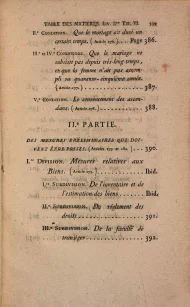 TABLE DES MATIERES. Liv. Iᵉʳ Tit. VI.
II.ᵉ CONDITION. Que le mariage ait duré un
certain temps. (Article 276.) Page 386.
III.ᵉ et IV.ᵉ CONDITIONS. Que le mariage ne
subsiste pas depuis très-long temps,
et que la femme n'ait pas accom-
pli sa quarante-cinquième année.
(Article 277.) 387.
V.ᵉ CONDITION. Le consentement des ascen-
dans. (Article 278.) 388.
II.ᵉ PARTIE.
DES MESURES PRÉLIMINAIRES QUE DOI-
VENT ÊTRE PRISES. 390.
I.ʳᵉ DIVISION. Mesures relatives aux
Biens. (Article 279.) Ibid.
I.ʳᵉ SUBDIVISION. De l'inventaire et de
l'estimation des biens. Ibid.
II.ᵉ SUBDIVISION. Du règlement des
droits 391.
III.ᵉ SUBDIVISION. De la faculté de
transiger 392.